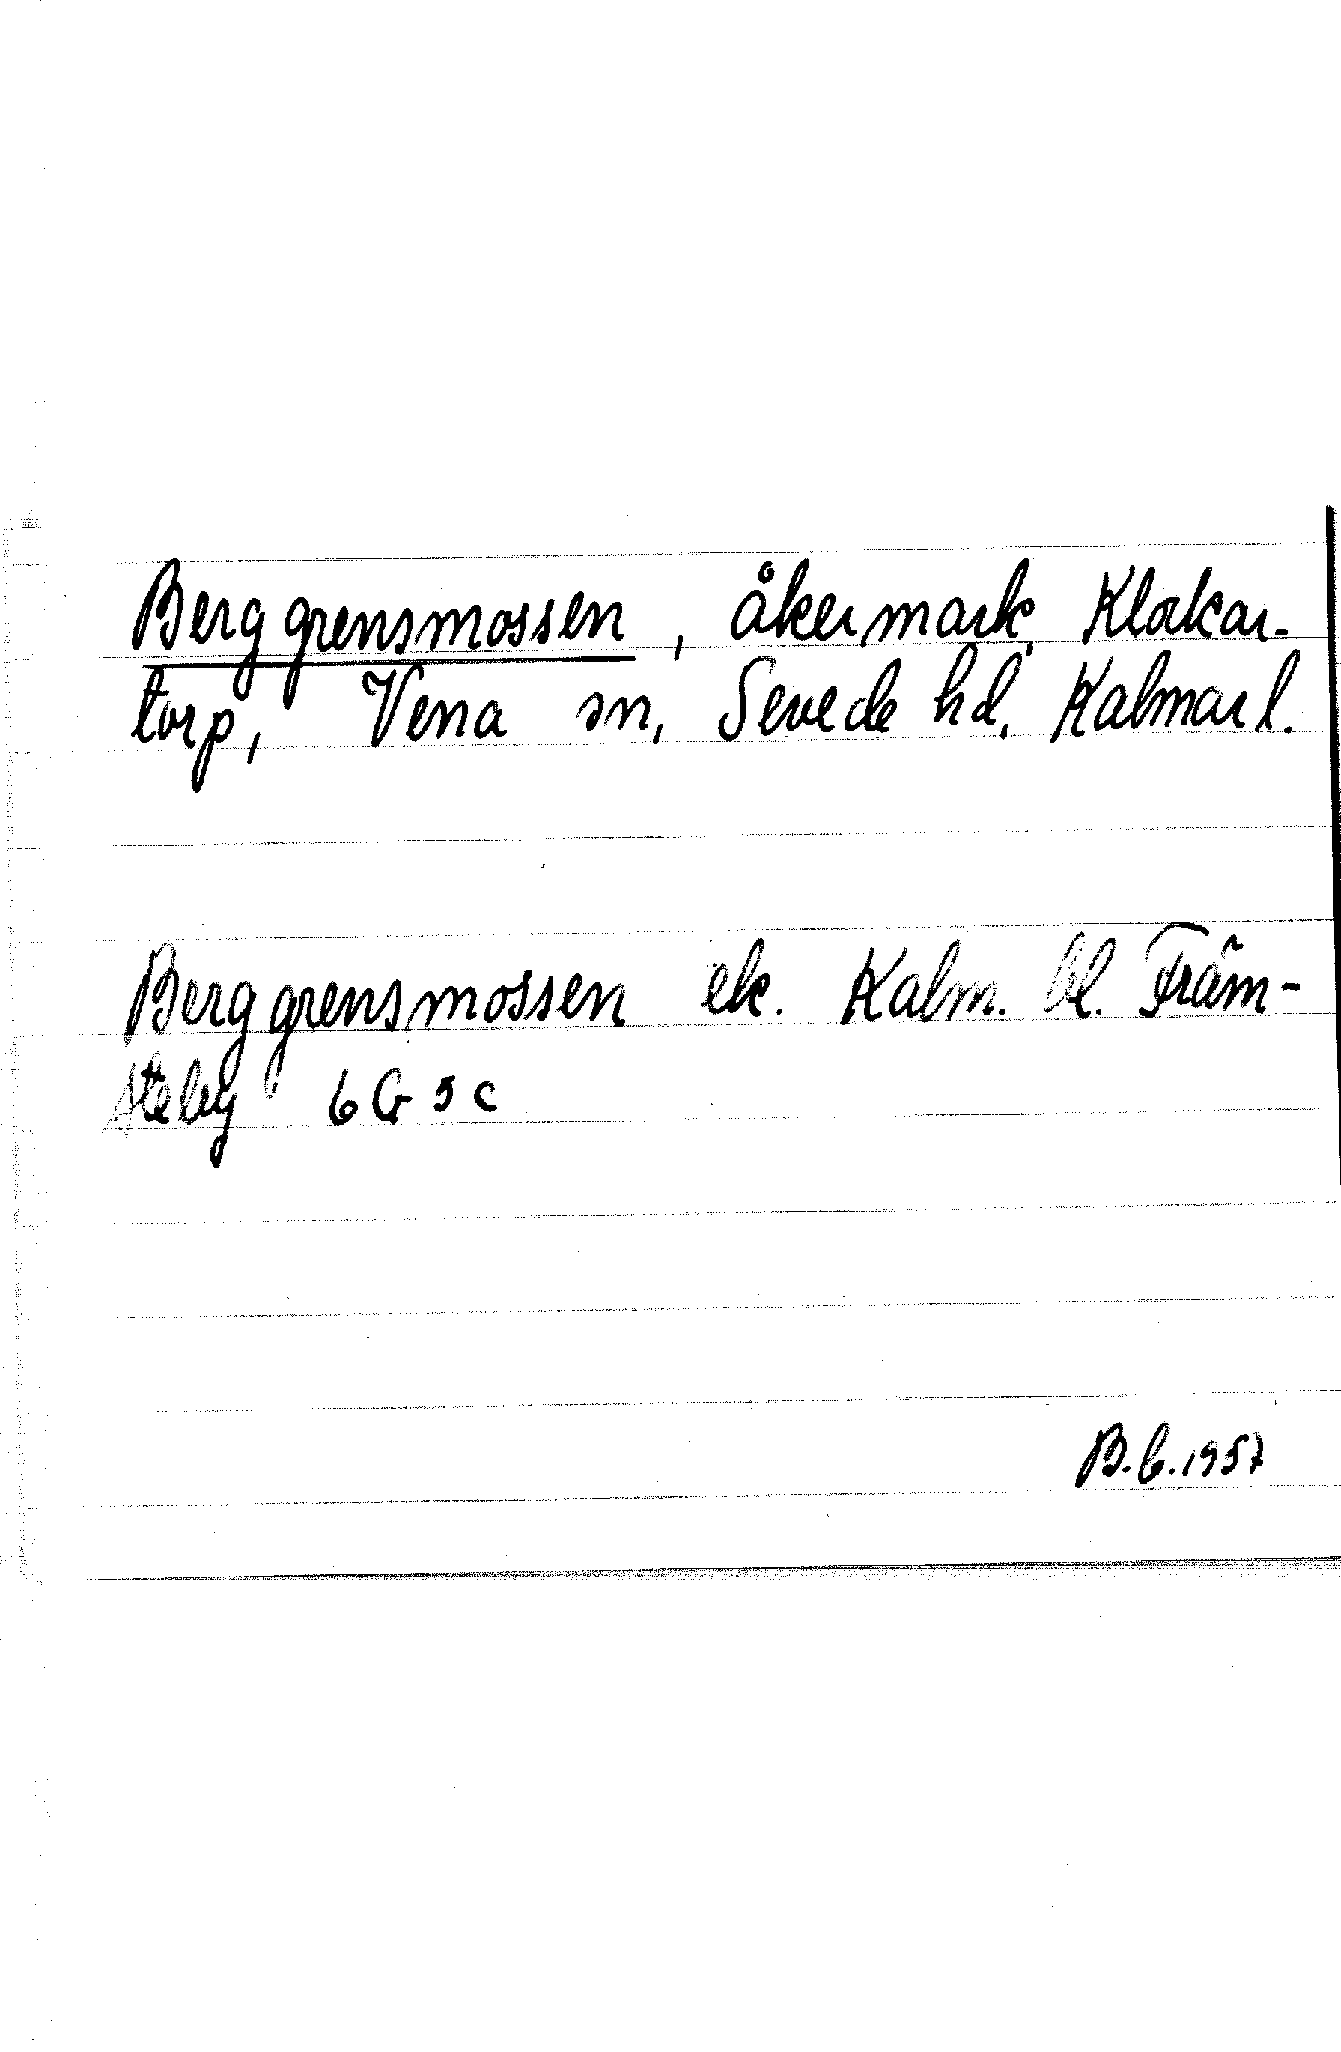 Berggrensmossen, åkermark, Klockar-
torp, Vena sn, Sevede hd, Kalmar l.
Berggrensmossen ek. Kalm. bl. Främ-
steby 6 G 5 c
B.G. 1957